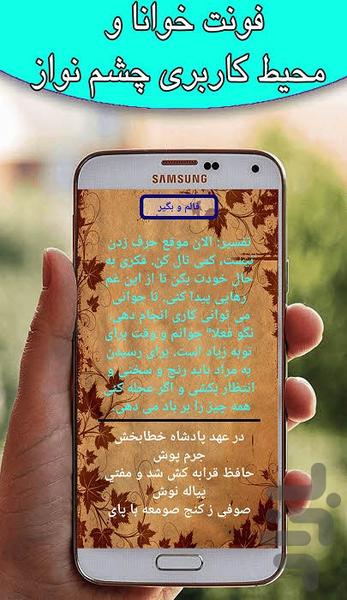 فونت خوانا و
محیط کاربری چشم نواز
SAMSUNG
فالم و بگیر
تفسیر: الان موقع حرف زدن
نیست، کمی تال کن. فکری به
حال خودت بکن تا از این غم
رهایی پیدا کنی. تا جوانی
می توانی کاری انجام دهی
نگو فعلا" جوانم و وقت برای
توبه زیاد است. برای رسیدن
به مراد باید رنج و سختی و
انتظار بکشی و اگر عجله کنی
همه چیز را بر باد می دهی
در عهد پادشاه خطابخش
جرم پوش
حافظ قرابه کش شد و مفتی
پیاله نوش
صوفی ز کنج صومعه با پای
بازار